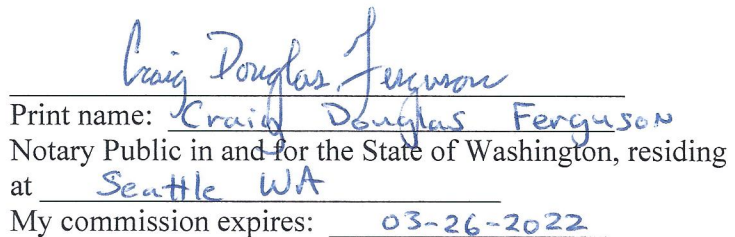 Craig Douglas Ferguson
Print name: Craig Douglas Ferguson
Notary Public in and for the State of Washington, residing
at Seattle WA
My commission expires: 03-26-2022